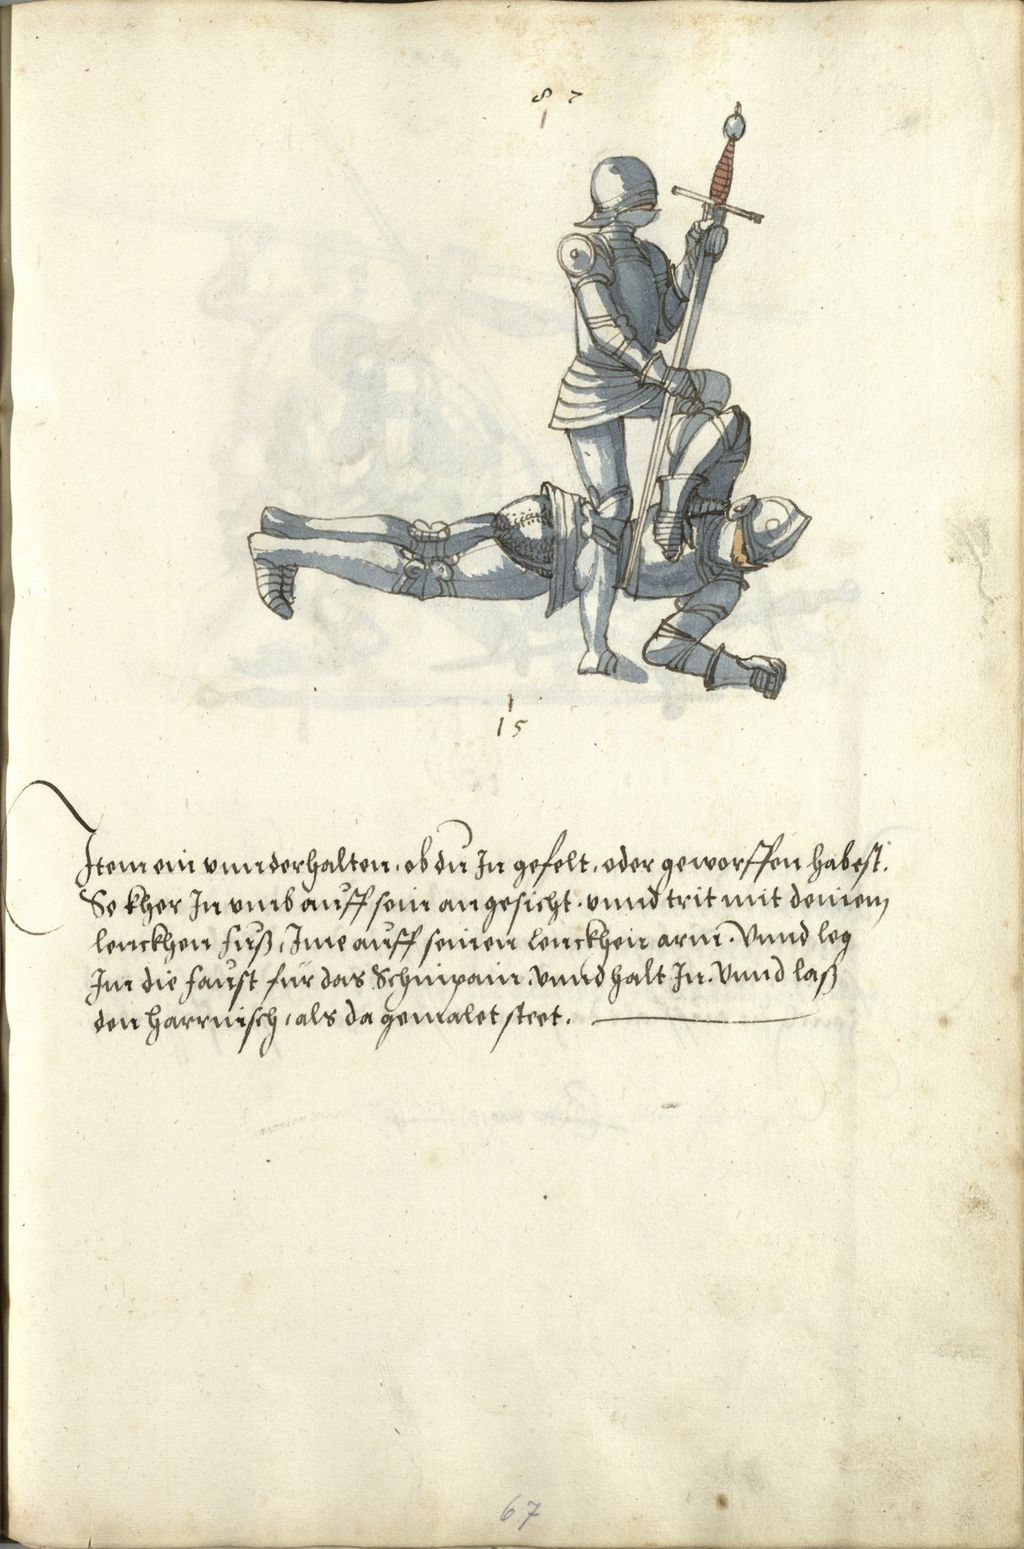 87
15
Item ein vnnderhalten. ob du In gefelt. oder geworffen habest.
So kher In vmb auff sein angesicht. vnnd trit mit deinem
lenckhen fuß, Ime auff seinen lenckhen arm. Vnnd leg
Im die faust für das Schinpain. Vnnd halt In. Vnnd laß
den harrnisch, als da gemalet steet.
67